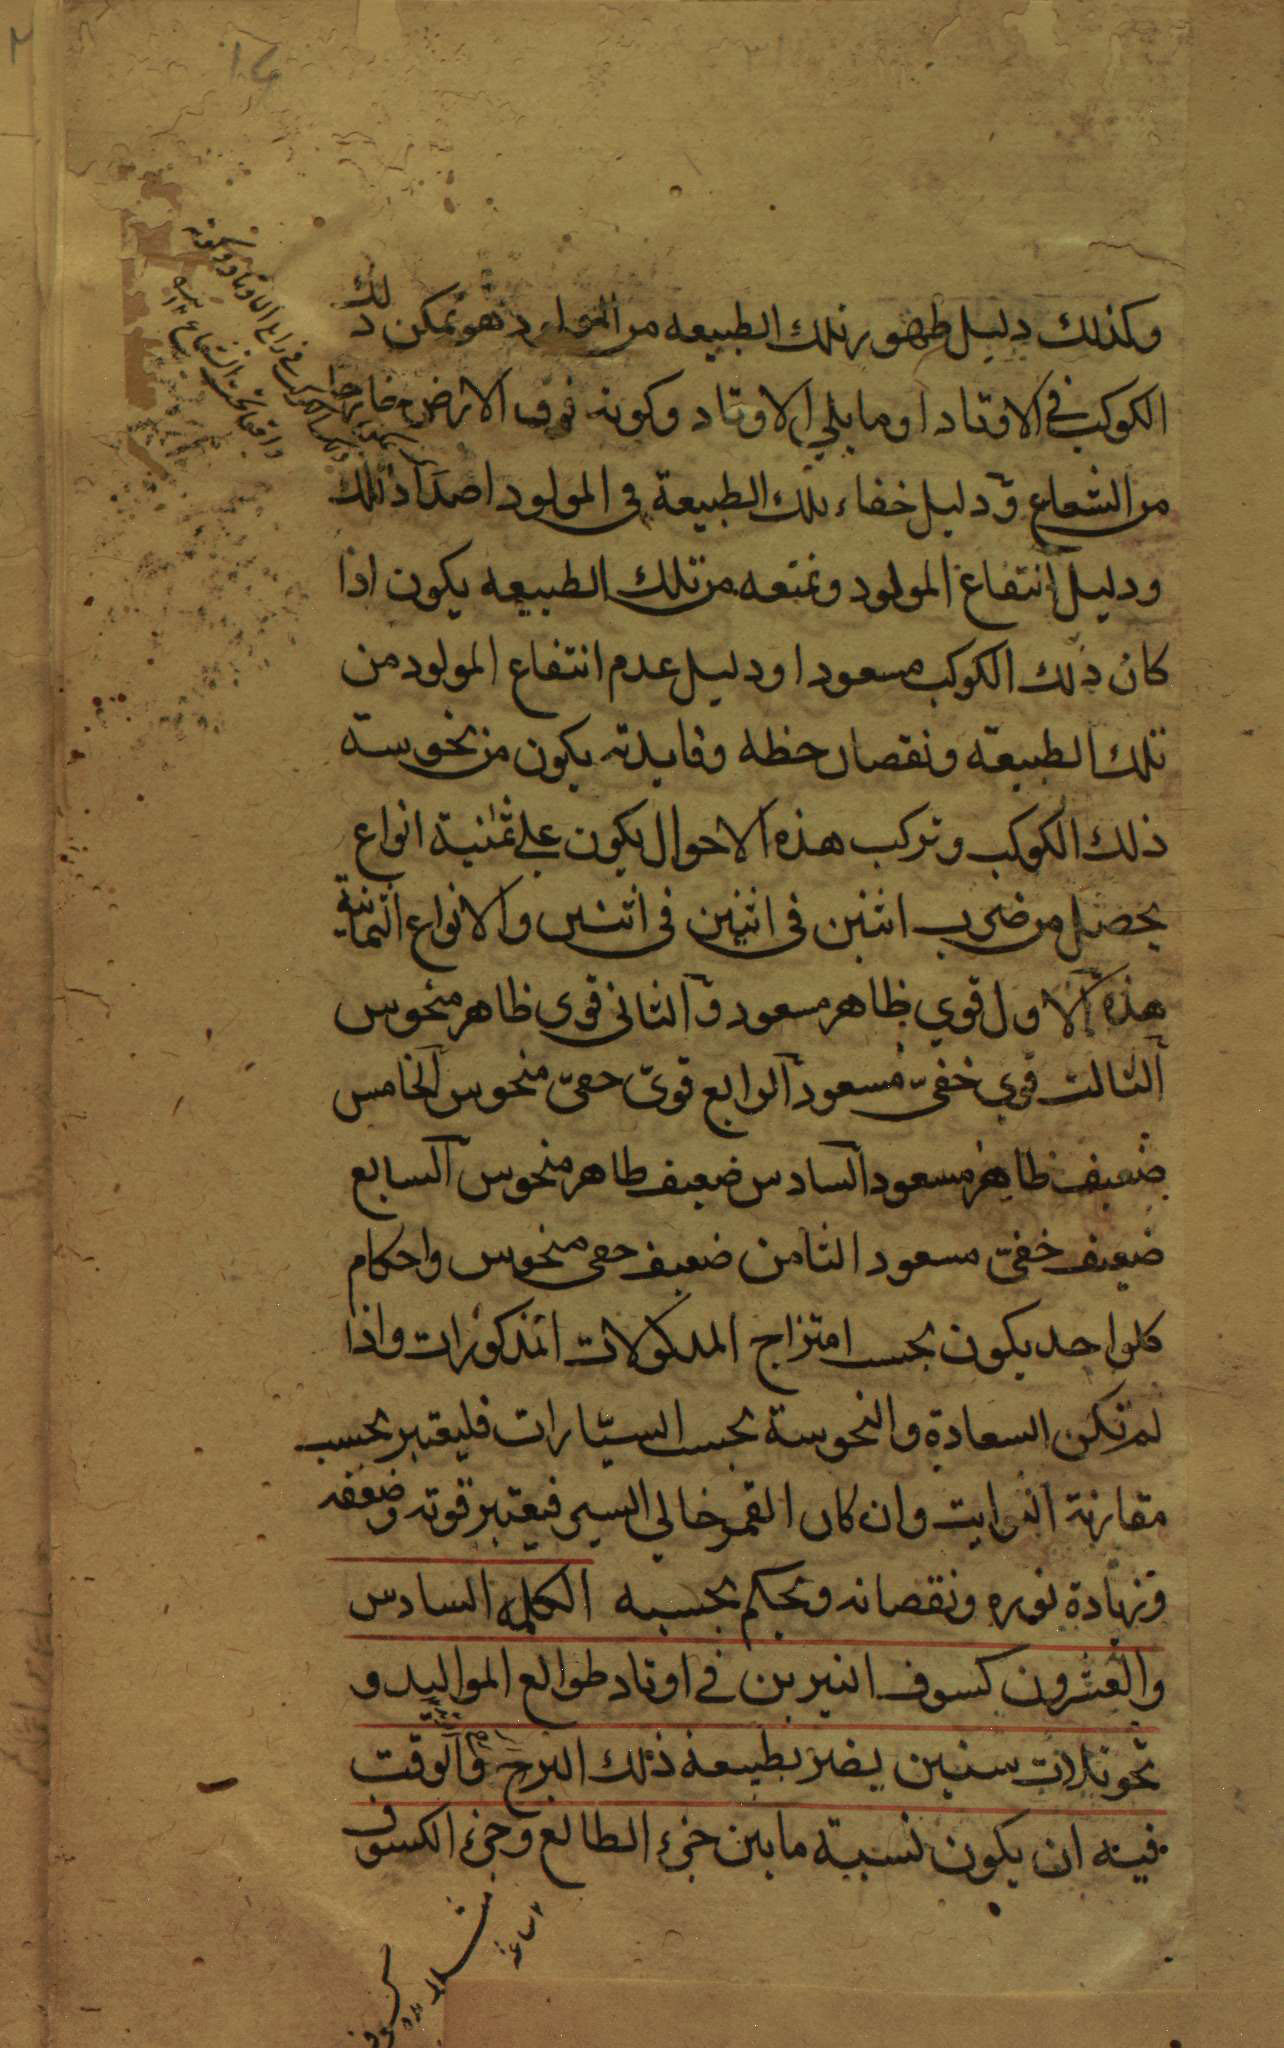 وكذلك دليل ظهور تلك الطبيعه من المولود هو تمكن ذلك
الكوكب في الاوتاد او ما يلي الاوتاد وكونه فوق الارض خارجا
من الشعاع و دليل خفاء تلك الطبيعة في المولود اضداد ذلك
ودليل انتفاع المولود وتمتعه من تلك الطبيعه يكون اذا
كان ذلك الكوكب مسعودا ودليل عدم انتفاع المولود من
تلك الطبيعة ونقصان حظه وفايدته يكون من نحوسة
ذلك الكوكب وتركب هذه الاحوال يكون على ثمنية انواع
يحصل من ضرب اثنين في اثنين في اثنين والانواع الثمانية
هذه الاول قوي ظاهر مسعود والثاني قوى ظاهر منحوس
الثالث قوي خفيّ مسعود الرابع قويّ خفيّ منحوس الخامس
ضعيف ظاهر مسعود السادس ضعيف ظاهر منحوس السابع
ضعيف خفيّ مسعود الثامن ضعيف خفي منحوس واحكام
كلواحد يكون بحسب امتزاج المدلولات المذكورات واذا
لم تكن السعادة والنحوسة بحسب السيّارات فليعتبر بحسب
مقارنة الثوابت وان كان القمر خالي السير فيعتبر قوته وضعفه
وزيادة نوره ونقصانه ويحكم بحسبه الكلمه السادس
والعشرون كسوف النيرين في اوتاد طوالع المواليد و
تحويلات سنين يضر بطبيعة ذلك البرج والوقت
فيه ان يكون نسبة ما بين جزء الطالع وجزء الكسوف